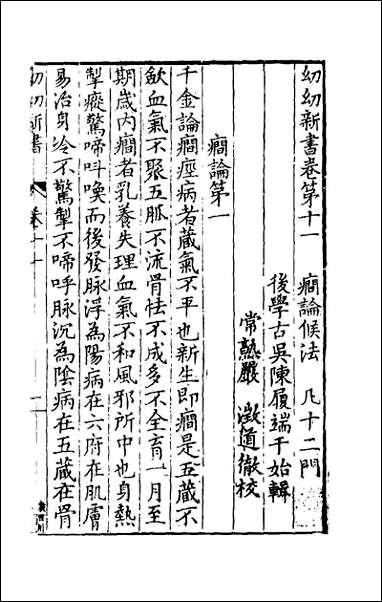 幼幼新書卷第十一　癇論候法　凡十二門
後學古吳陳履端于始輯
常熟嚴　澂道徹校
癇論第一
千金論癇痙病者蔵氣不平也新生即癇是五蔵不
歛血氣不聚五脈不流骨怯不成多不全育一月至
期歲内癇者乳養失理血氣不和風邪所中也身熱
掣瘲驚啼呌喚而後發脉浮為陽病在六府在肌膚
易治身冷不驚掣不啼呼脉沉為陰病在五蔵在骨
幼幼新書　卷十一　一